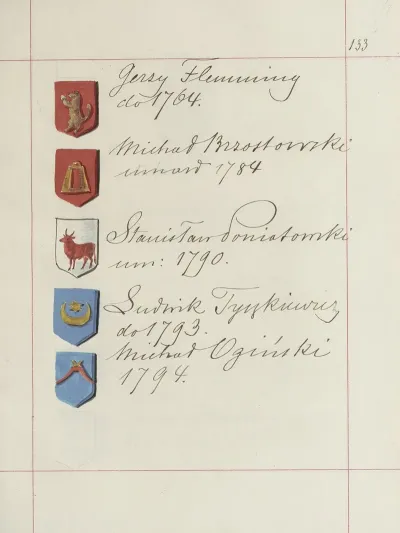 133
Jerzy Flemming
do 1764.
Michał Brzostowski
umarł 1784
Stanisław Poniatowski
um: 1790.
Ludwik Tyszkiewicz
do 1793.
Michał Ogiński
1794.